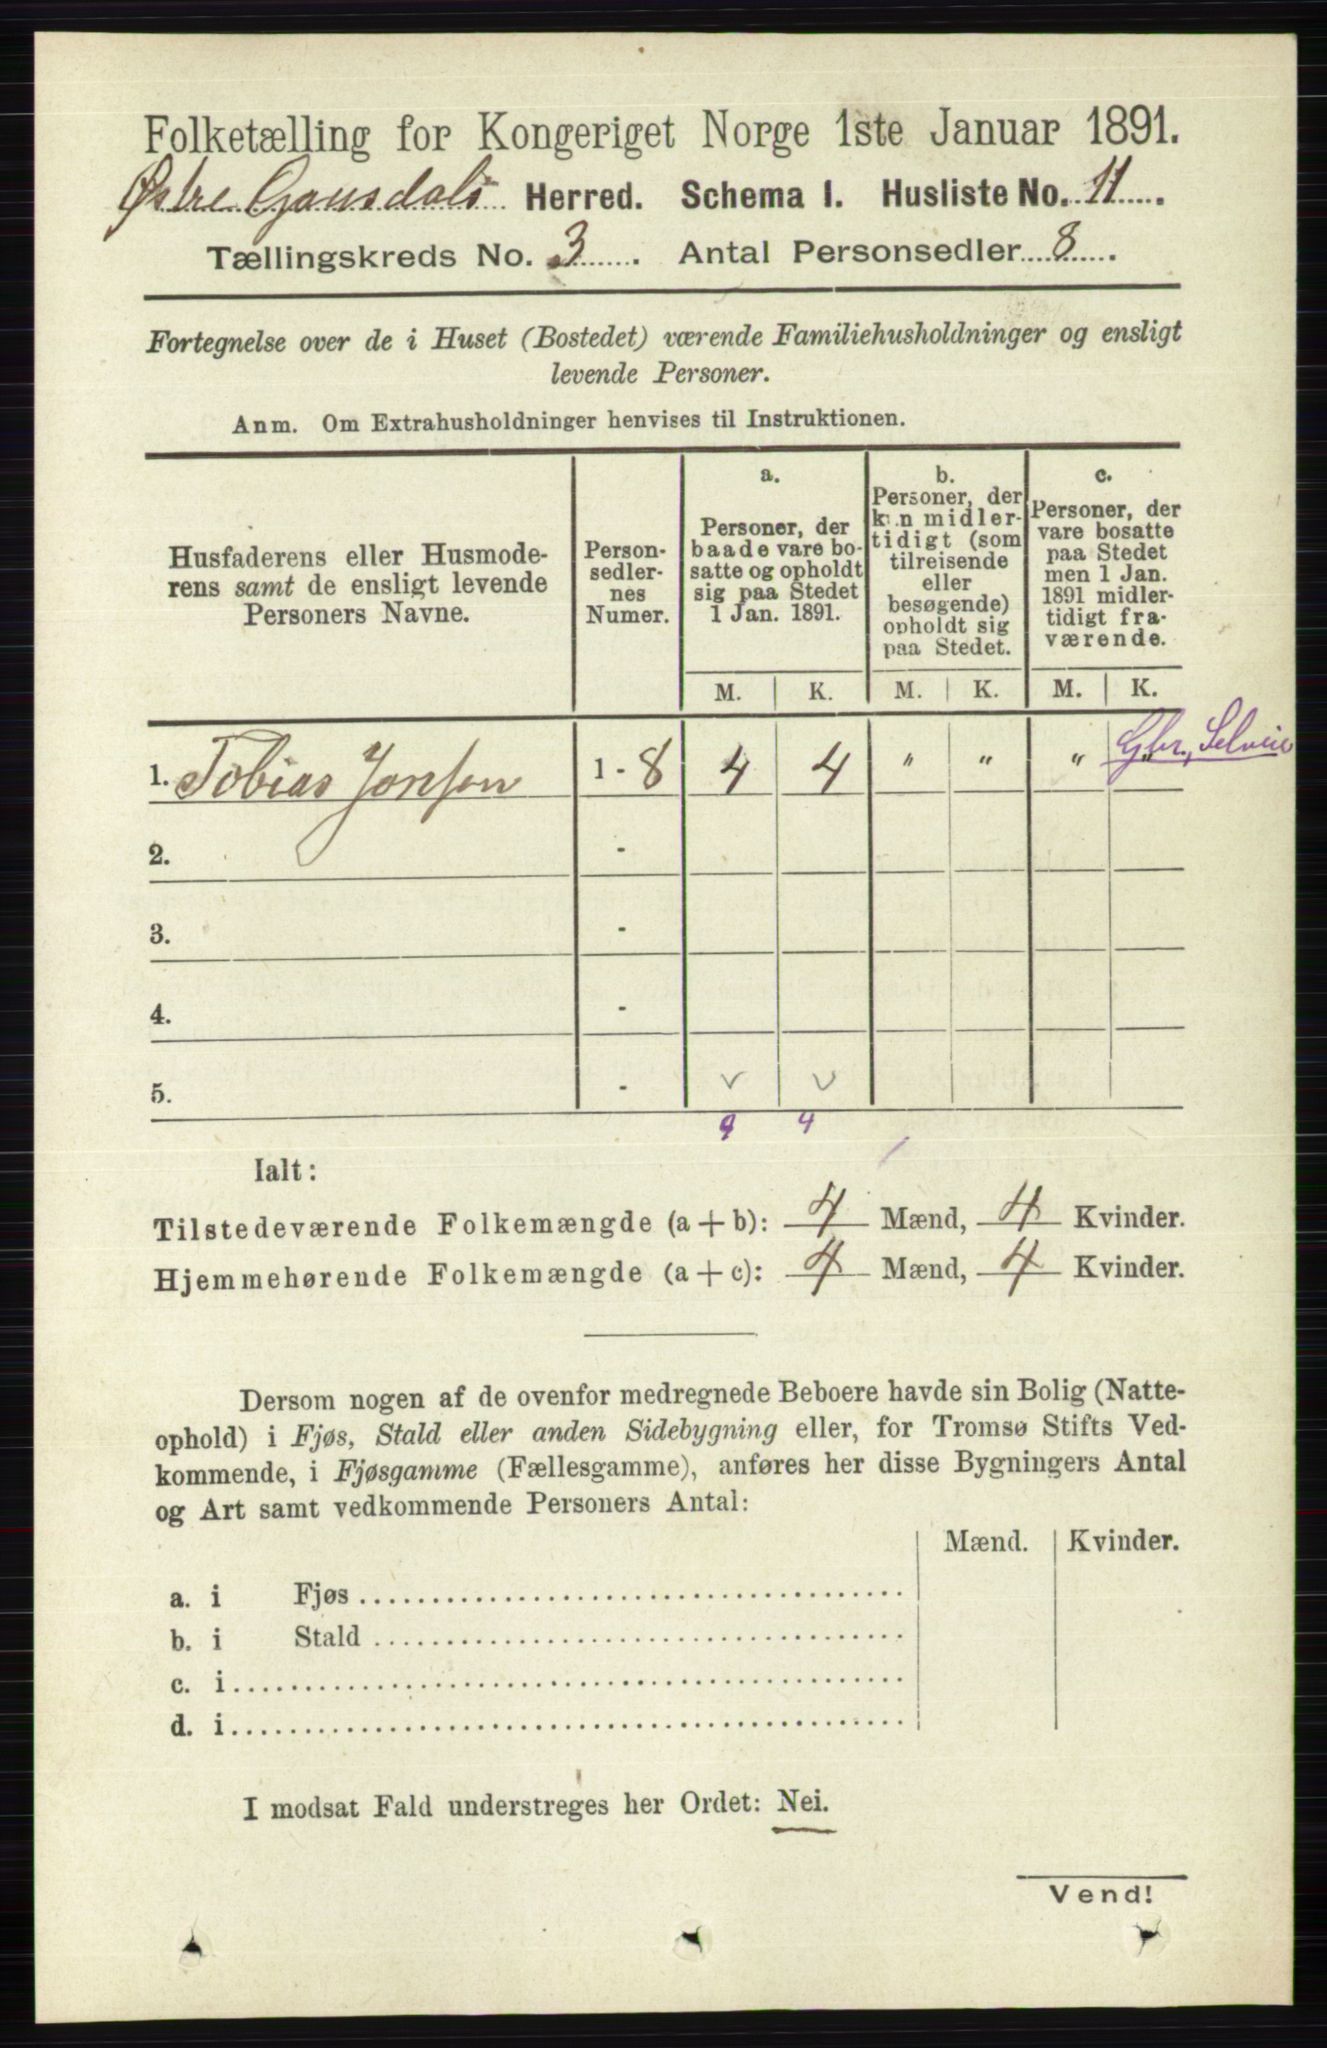 Folketælling for Kongeriget Norge 1ste Januar 1891.
Østre Gausdals Herred. Schema I. Husliste No. 11.
Tællingskreds No. 3. Antal Personsedler 8.
Fortegnelse over de i Huset (Bostedet) værende Familiehusholdninger og ensligt
levende Personer.
Anm. Om Extrahusholdninger henvises til Instruktionen.
Husfaderens eller Husmode-
rens samt de ensligt levende
Personers Navne.
Person-
sedler-
nes
Numer.
a.
Personer, der
baade vare bo-
satte og opholdt
sig paa Stedet
1 Jan. 1891.
b.
Personer, der
kun midler-
tidigt (som
tilreisende
eller
besøgende)
opholdt sig
paa Stedet.
c.
Personer, der
vare bosatte
paa Stedet
men 1 Jan.
1891 midler-
tidigt fra-
værende.
M. K. M. K. M. K.
1. Tobias Jonsen 1 - 8 4 4 " " " " Gbr., Selveier
2. -
3. -
4. -
5. - v v
4 4
Ialt:
Tilstedeværende Folkemængde (a + b): 4 Mænd, 4 Kvinder.
Hjemmehørende Folkemængde (a + c): 4 Mænd, 4 Kvinder.
Dersom nogen af de ovenfor medregnede Beboere havde sin Bolig (Natte-
ophold) i Fjøs, Stald eller anden Sidebygning eller, for Tromsø Stifts Ved-
kommende, i Fjøsgamme (Fællesgamme), anføres her disse Bygningers Antal
og Art samt vedkommende Personers Antal:
Mænd. Kvinder.
a. i Fjøs
b. i Stald
c. i
d. i
I modsat Fald understreges her Ordet: Nei.
Vend!